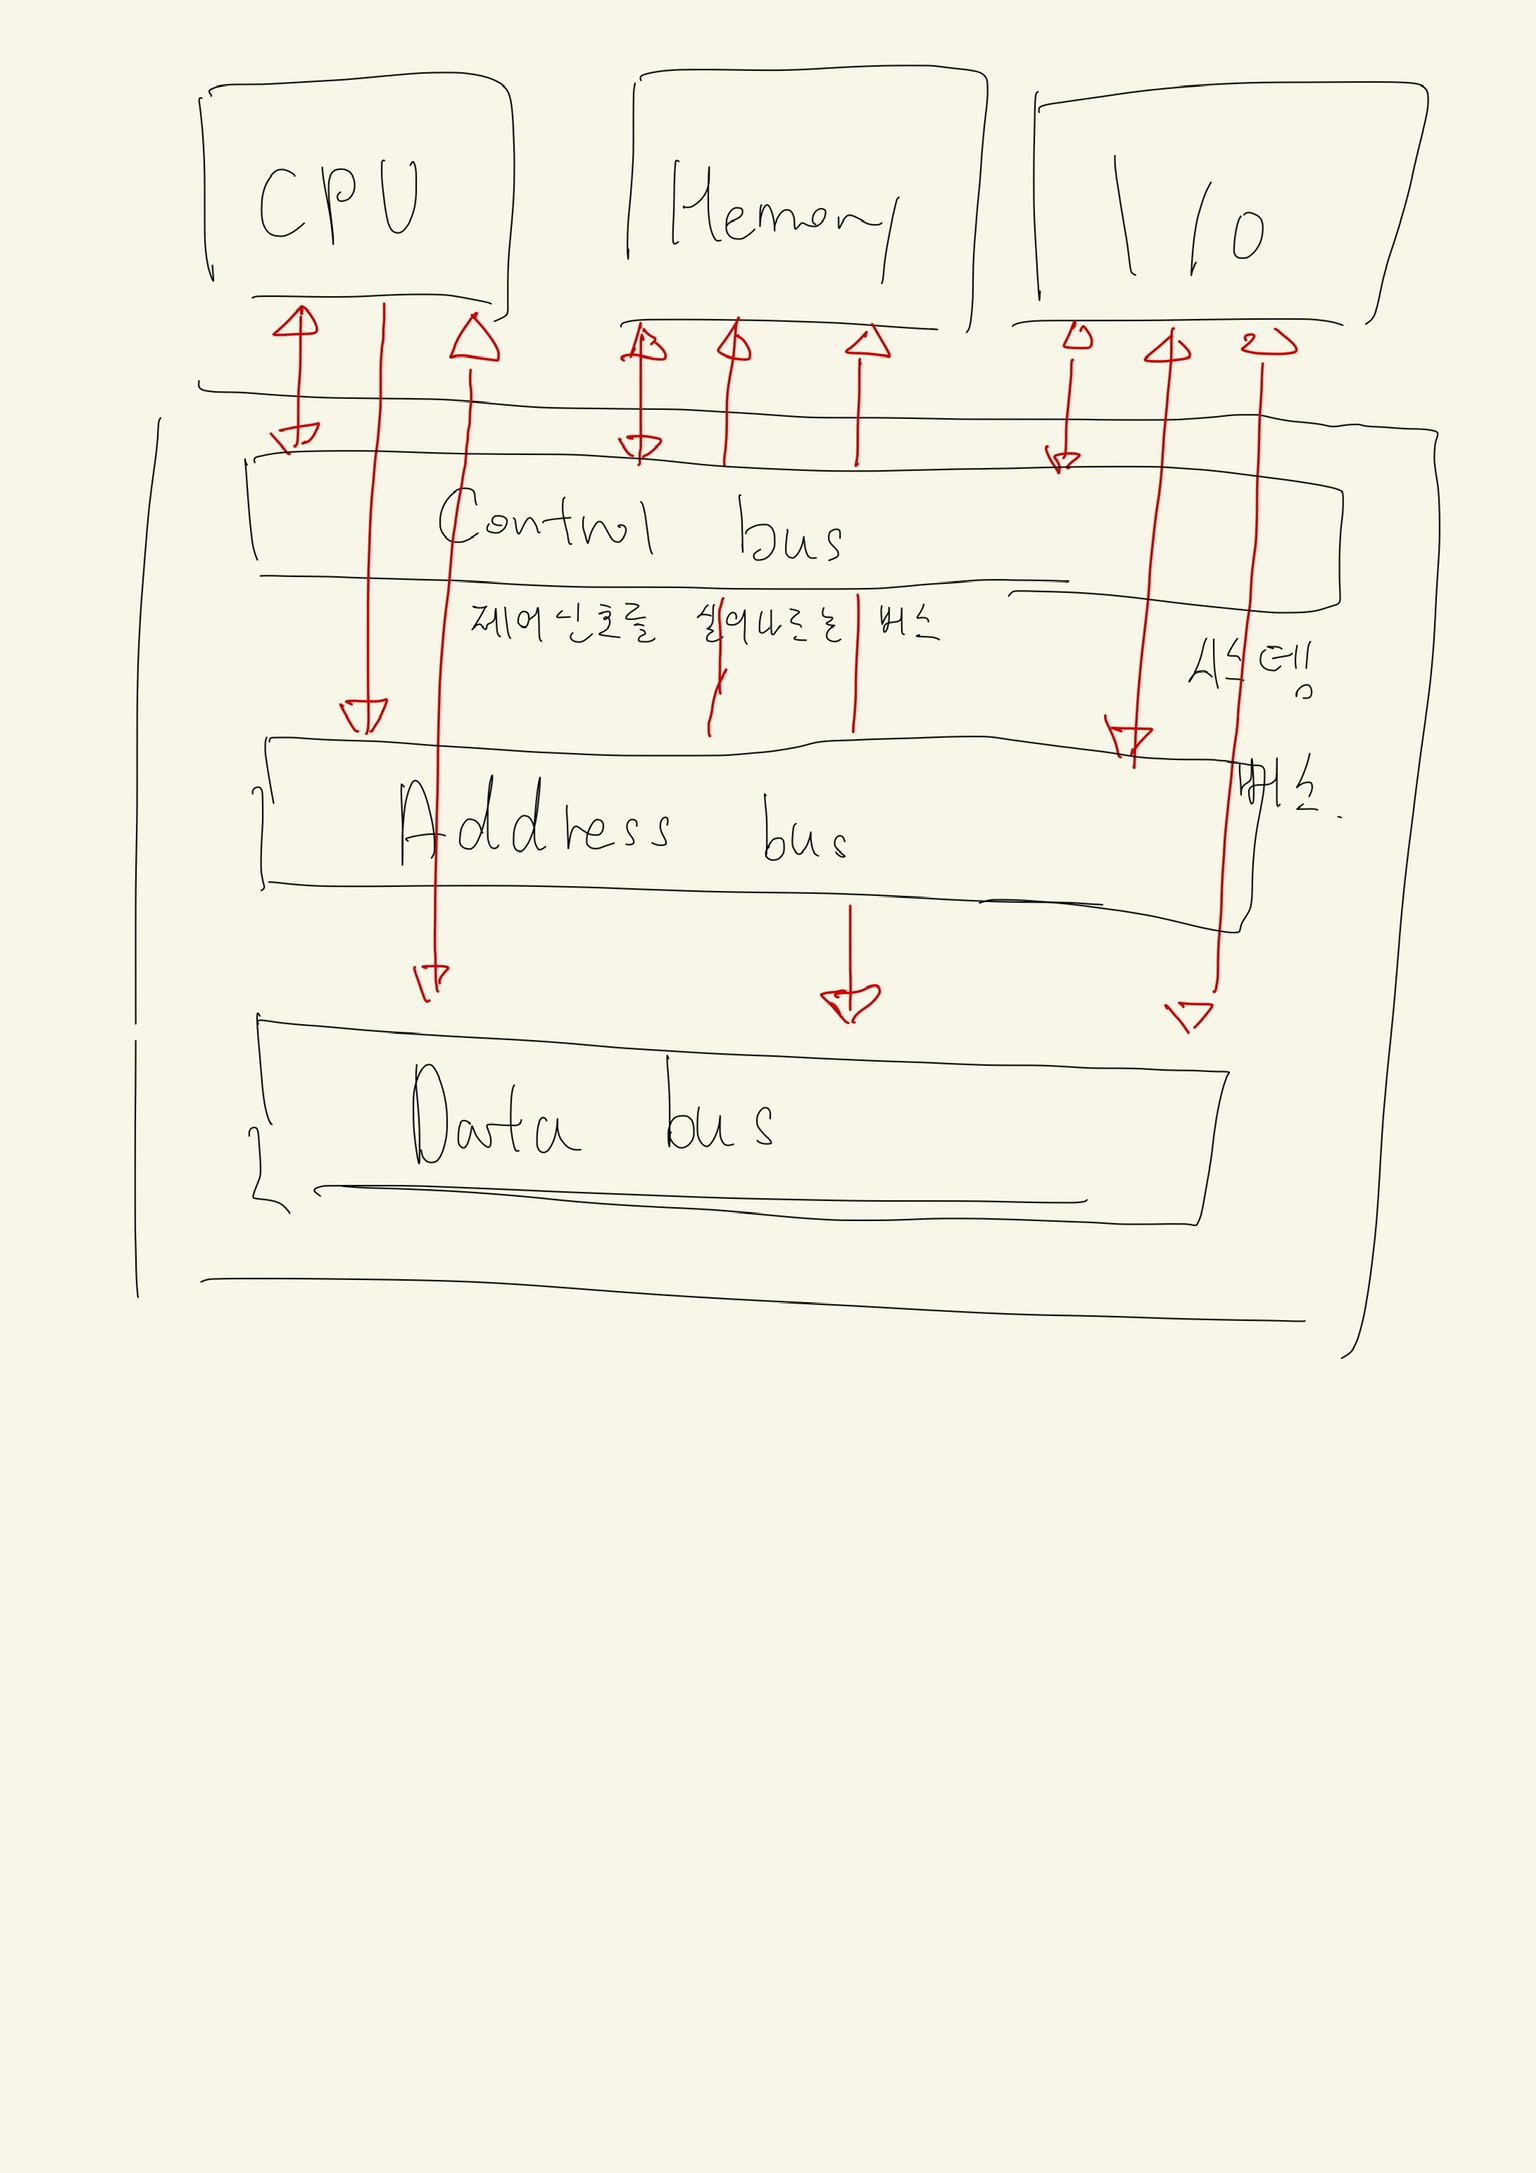 CPU
Memory
I/O
Control bus
제어신호를 실어나르는 버스
시스템
버스.
Address bus
Data bus